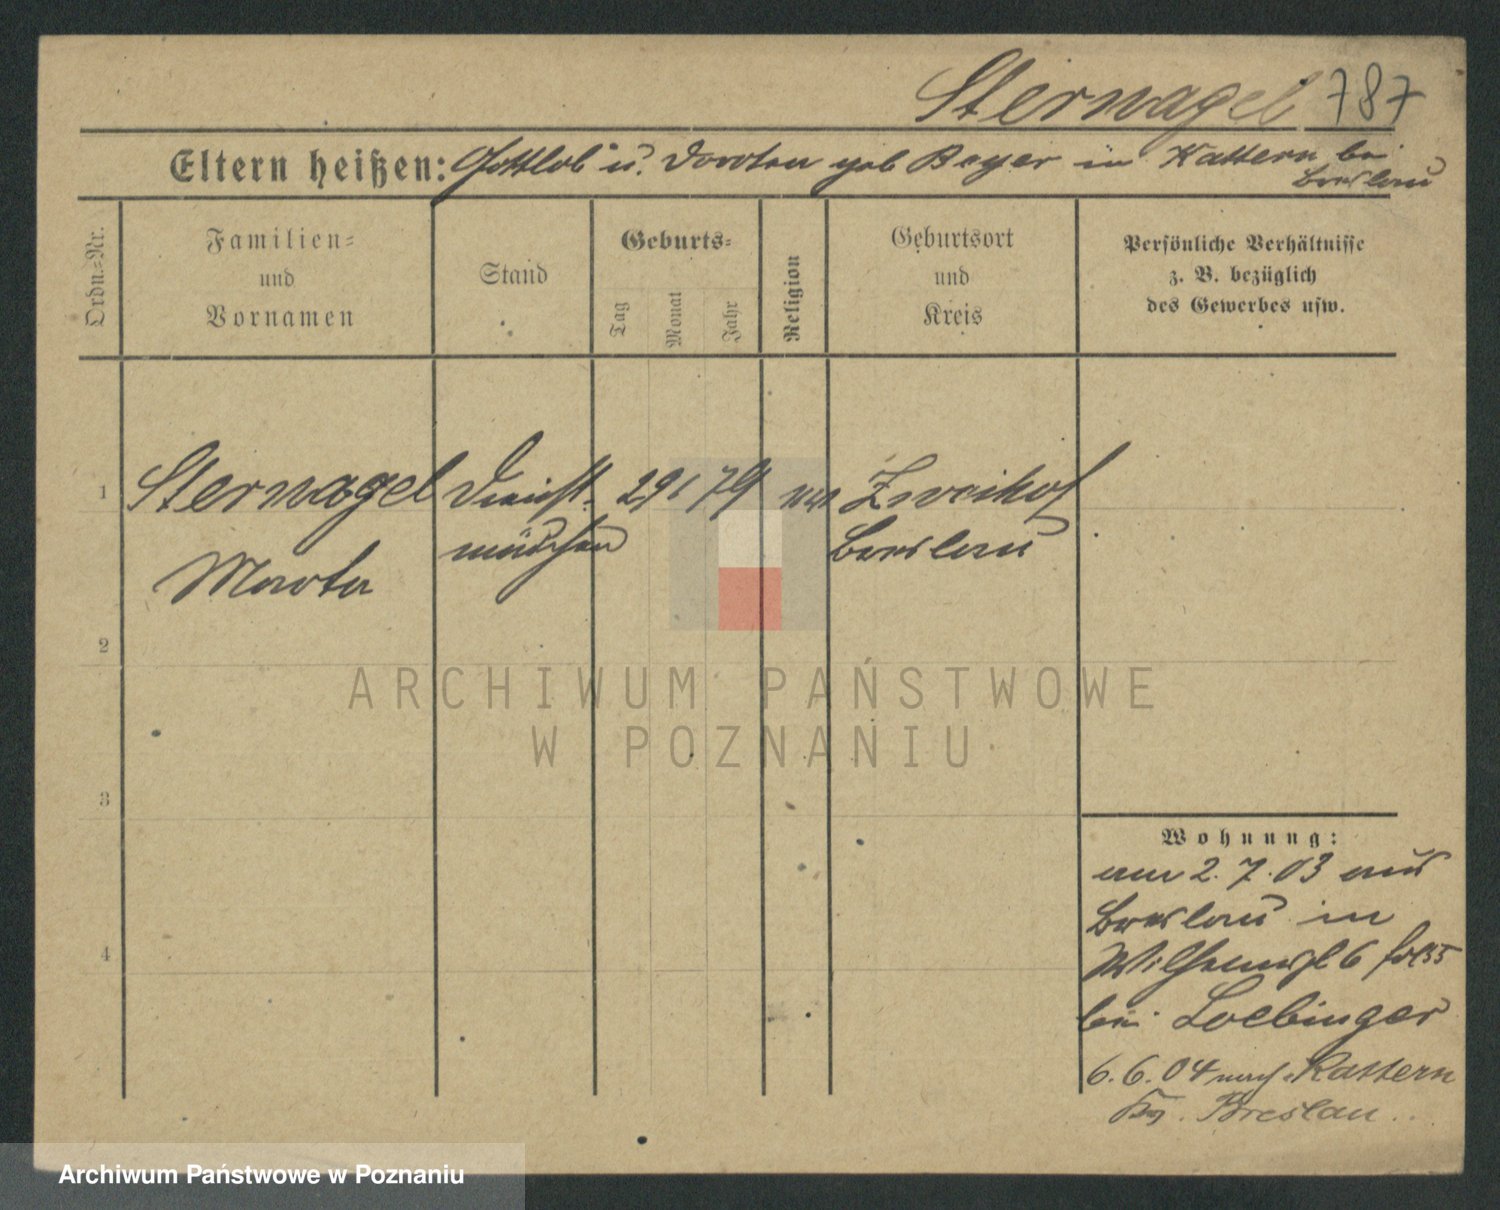 Sternagel 787
Eltern heißen: Gottlob u. Dorotea geb Beyer in Kattern bei
Breslau
Ordn.-Nr.
Familien-
und
Vornamen
Stand
Geburts-
Tag
Monat
Jahr
Religion
Geburtsort
und
Kreis
Persönliche Verhältnisse
z. B. bezüglich
des Gewerbes usw.
1 Sternagel Dienst- 29 1 79 Zweihof
mädchen Breslau
Marta
2
3
4
Wohnung:
am 2. 7. 03 aus
Breslau in
6
bei Loebinger
6. 6. 04 nach Kattern
Breslau
ARCHIWUM PAŃSTWOWE
W POZNANIU
Archiwum Państwowe w Poznaniu